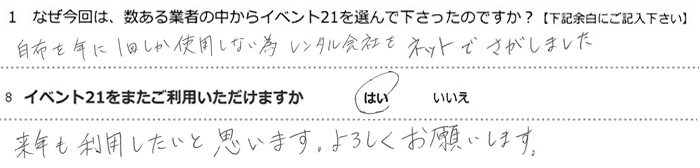 1 なぜ今回は、数ある業者の中からイベント21を選んで下さったのですか？【下記余白にご記入下さい】
白布を年に1回しか使用しない為レンタル会社をネットでさがしました
8 イベント21をまたご利用いただけますか はい いいえ
来年も利用したいと思います。よろしくお願いします。